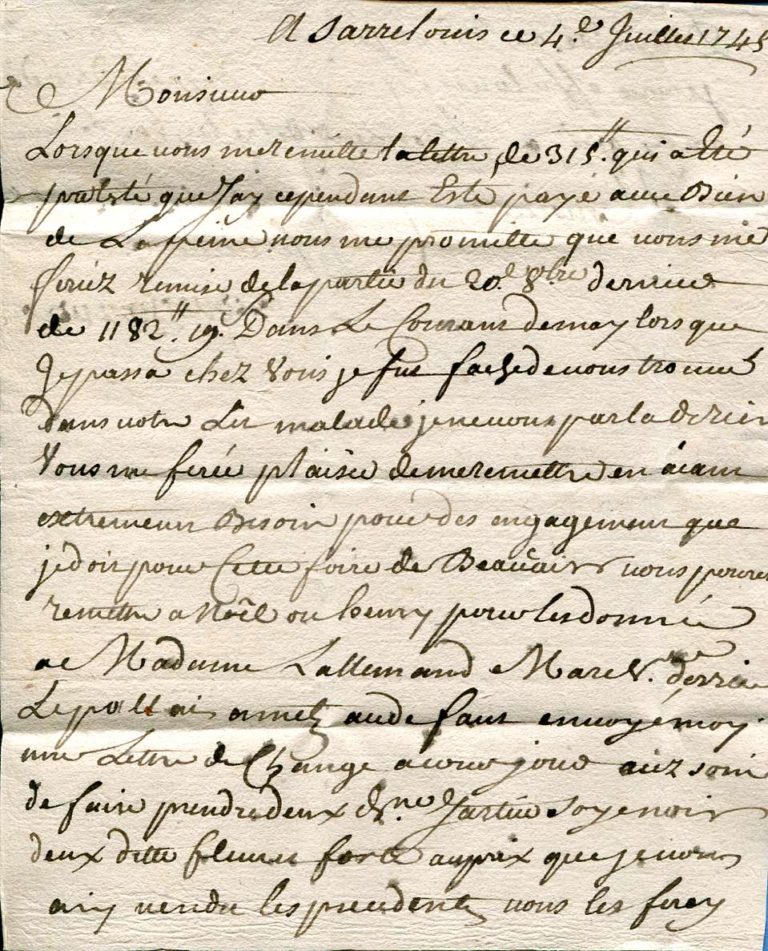 A Sarrelouis ce 4.e Juillet 1745
Monsieur
Lorsque vous me remitte la lettre de 315.tt qui a Eté
que Jay cependant Este payé avec Bien
de La peine vous me promitte que vous me
feriez remise de la partie du 20.e 8.bre dernier
de 1182.tt 19. Dans Le Courant de may lors que
Je passa chez Vous je fut faché de vous trouver
dans votre Lit malade je ne vous parla de rien
Vous me ferée plaisir de me remettre en aiant
extremement Besoin pour des engagement que
je doit pour Cette foire de Beaucair vous pouvez
remettre a Noêl ou henry pour les donnée
a Madame Lallemand Mare derrier
Le pallai a metz au de faut envoyé moy
une Lettre de Change a cour jour aiez soin
de faire prendre deux Jartier soye noir
deux ditte fleuret forte au prix que je vous
ay vendu les precedente vous les ferey